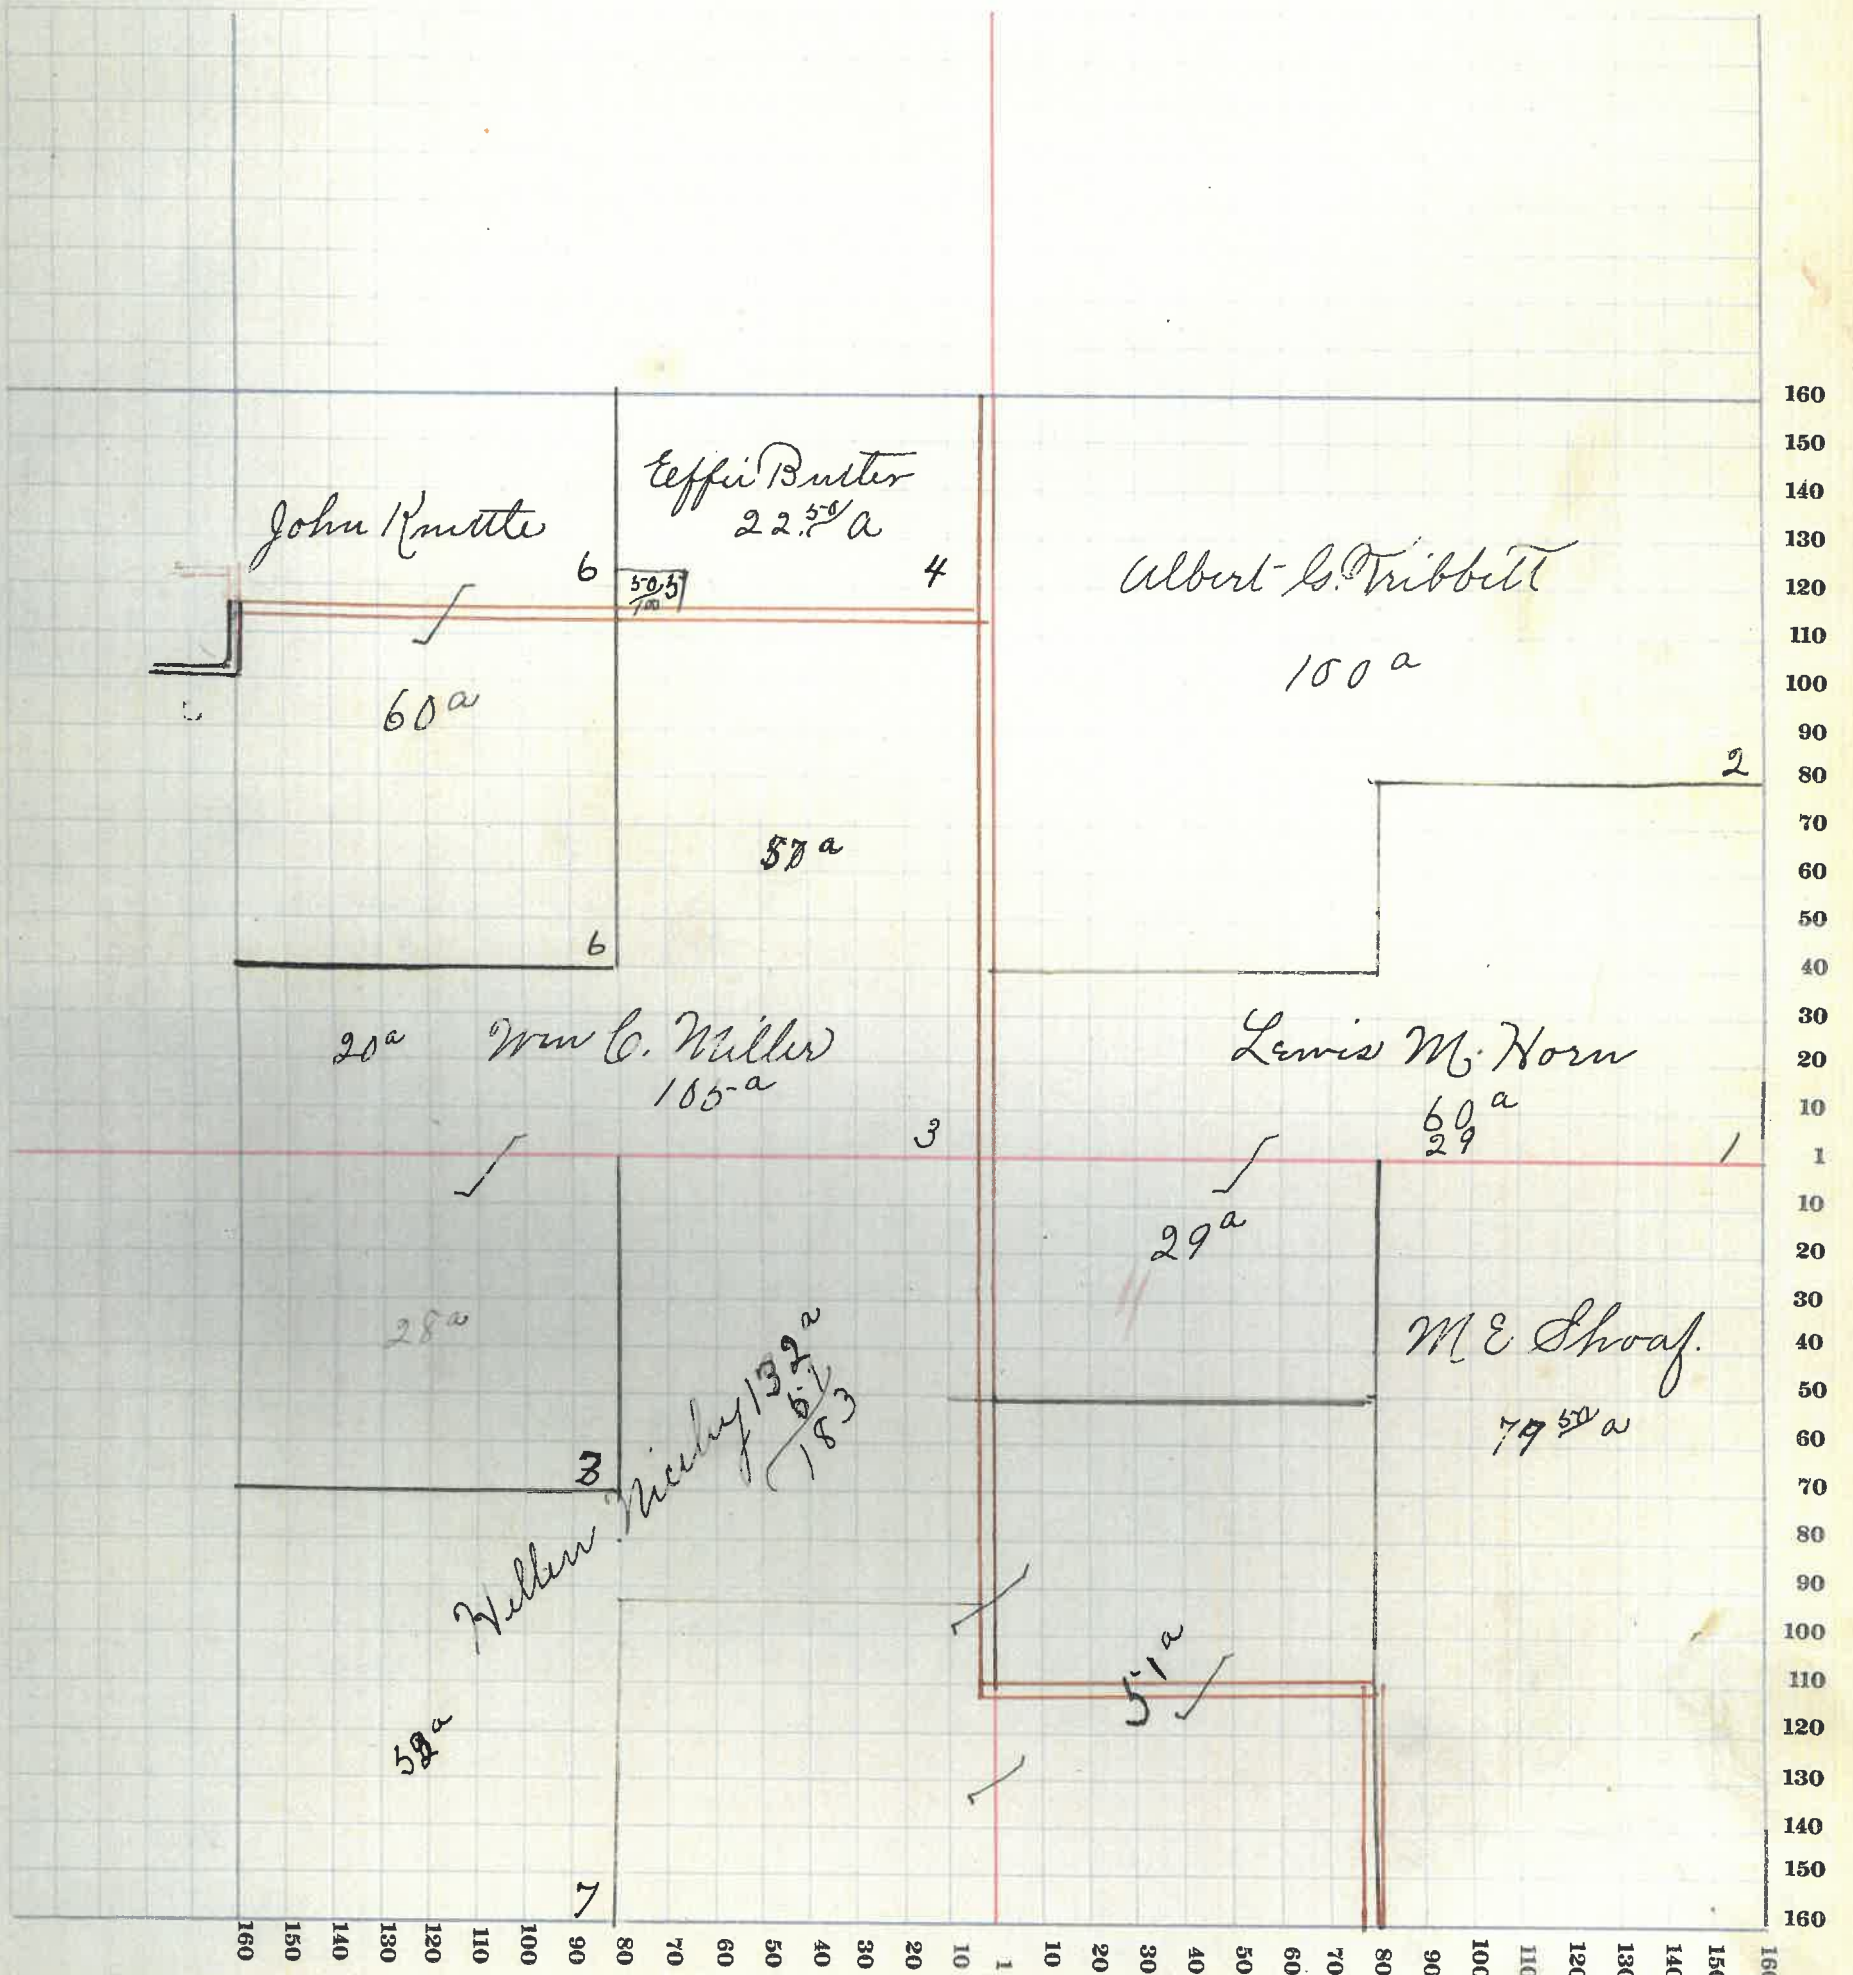 John Knittle
6
60 a
Effie Butler
22.50 a
50.5
100
4
Albert G. Tribbitt
100 a
2
57 a
6
20 a Wm C. Miller
105 a
3
Lewis M. Horn
60 a
29
1
28 a
3
29 a
M E Shoaf.
79 50 a
132 a
51
183
51 a
7
160
150
140
130
120
110
100
90
80
70
60
50
40
30
20
10
1
10
20
30
40
50
60
70
80
90
100
110
120
130
140
150
160
160 150 140 130 120 110 100 90 80 70 60 50 40 30 20 10 1 10 20 30 40 50 60 70 80 90 100 110 120 130 140 150 160